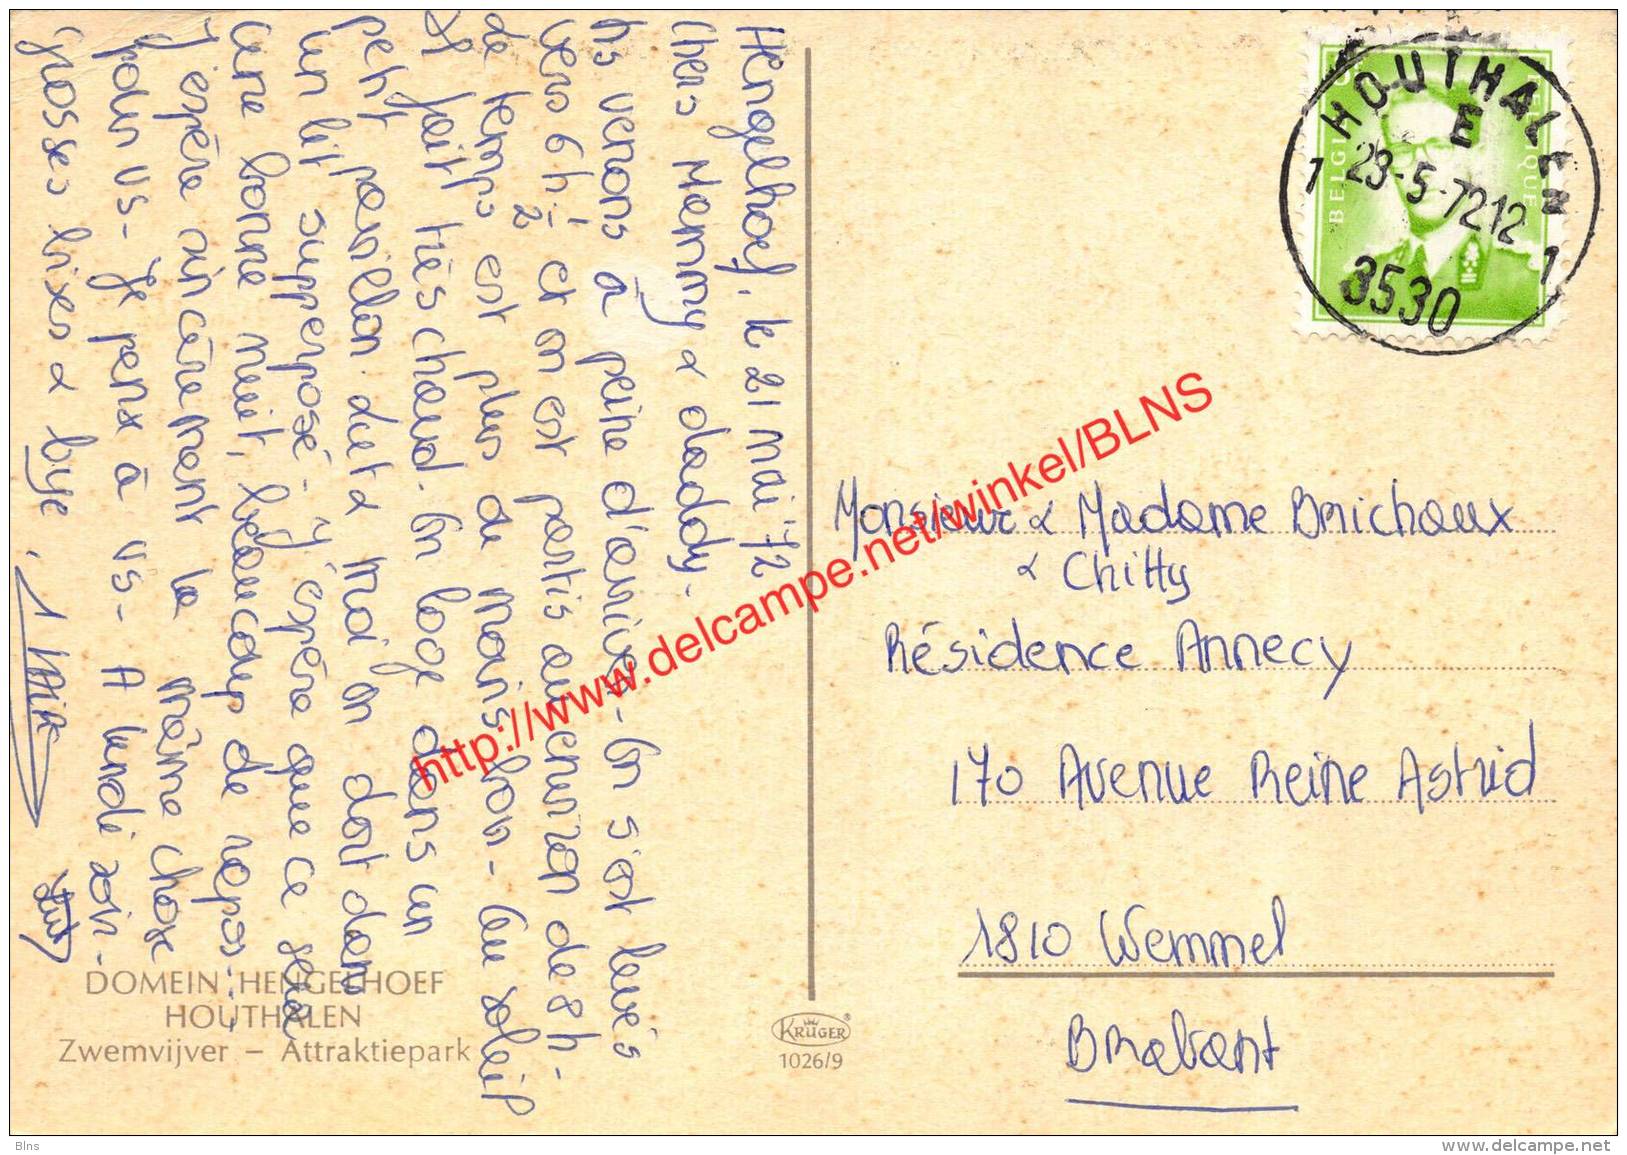 Hengelhoef, le 21 mai 72
Chers Mammy & daddy.
ns venons à peine d'arriver - On s'est levés
vers 6 h 1/2 et on est partis aux environ de 8 h -
de temps est plus au moins bon - Au soleil
il fait très chaud. On loge dans un
petit pavillon. Jut & moi on dort dans
un lit superposé - j'éspère que ce sera
une bonne nuit, beaucoup de repos -
J'espère sincèrement la même chose
pour vs - Je pense à vs - A lundi soir -
Grosses bixes & bye.
DOMEIN HENGELHOEF
HOUTHALEN
Zwemvijver – Attraktiepark
KRÜGER
1026/9
BELGIE BELGIQUE
HOUTHALEN
E
1 23-5-72 12 1
3530
Monsieur & Madame Brichaux
& Chitty
Résidence Annecy
170 Avenue Reine Astrid
1810 Wemmel
Brabant
http://www.delcampe.net/winkel/BLNS
Blns
www.delcampe.net